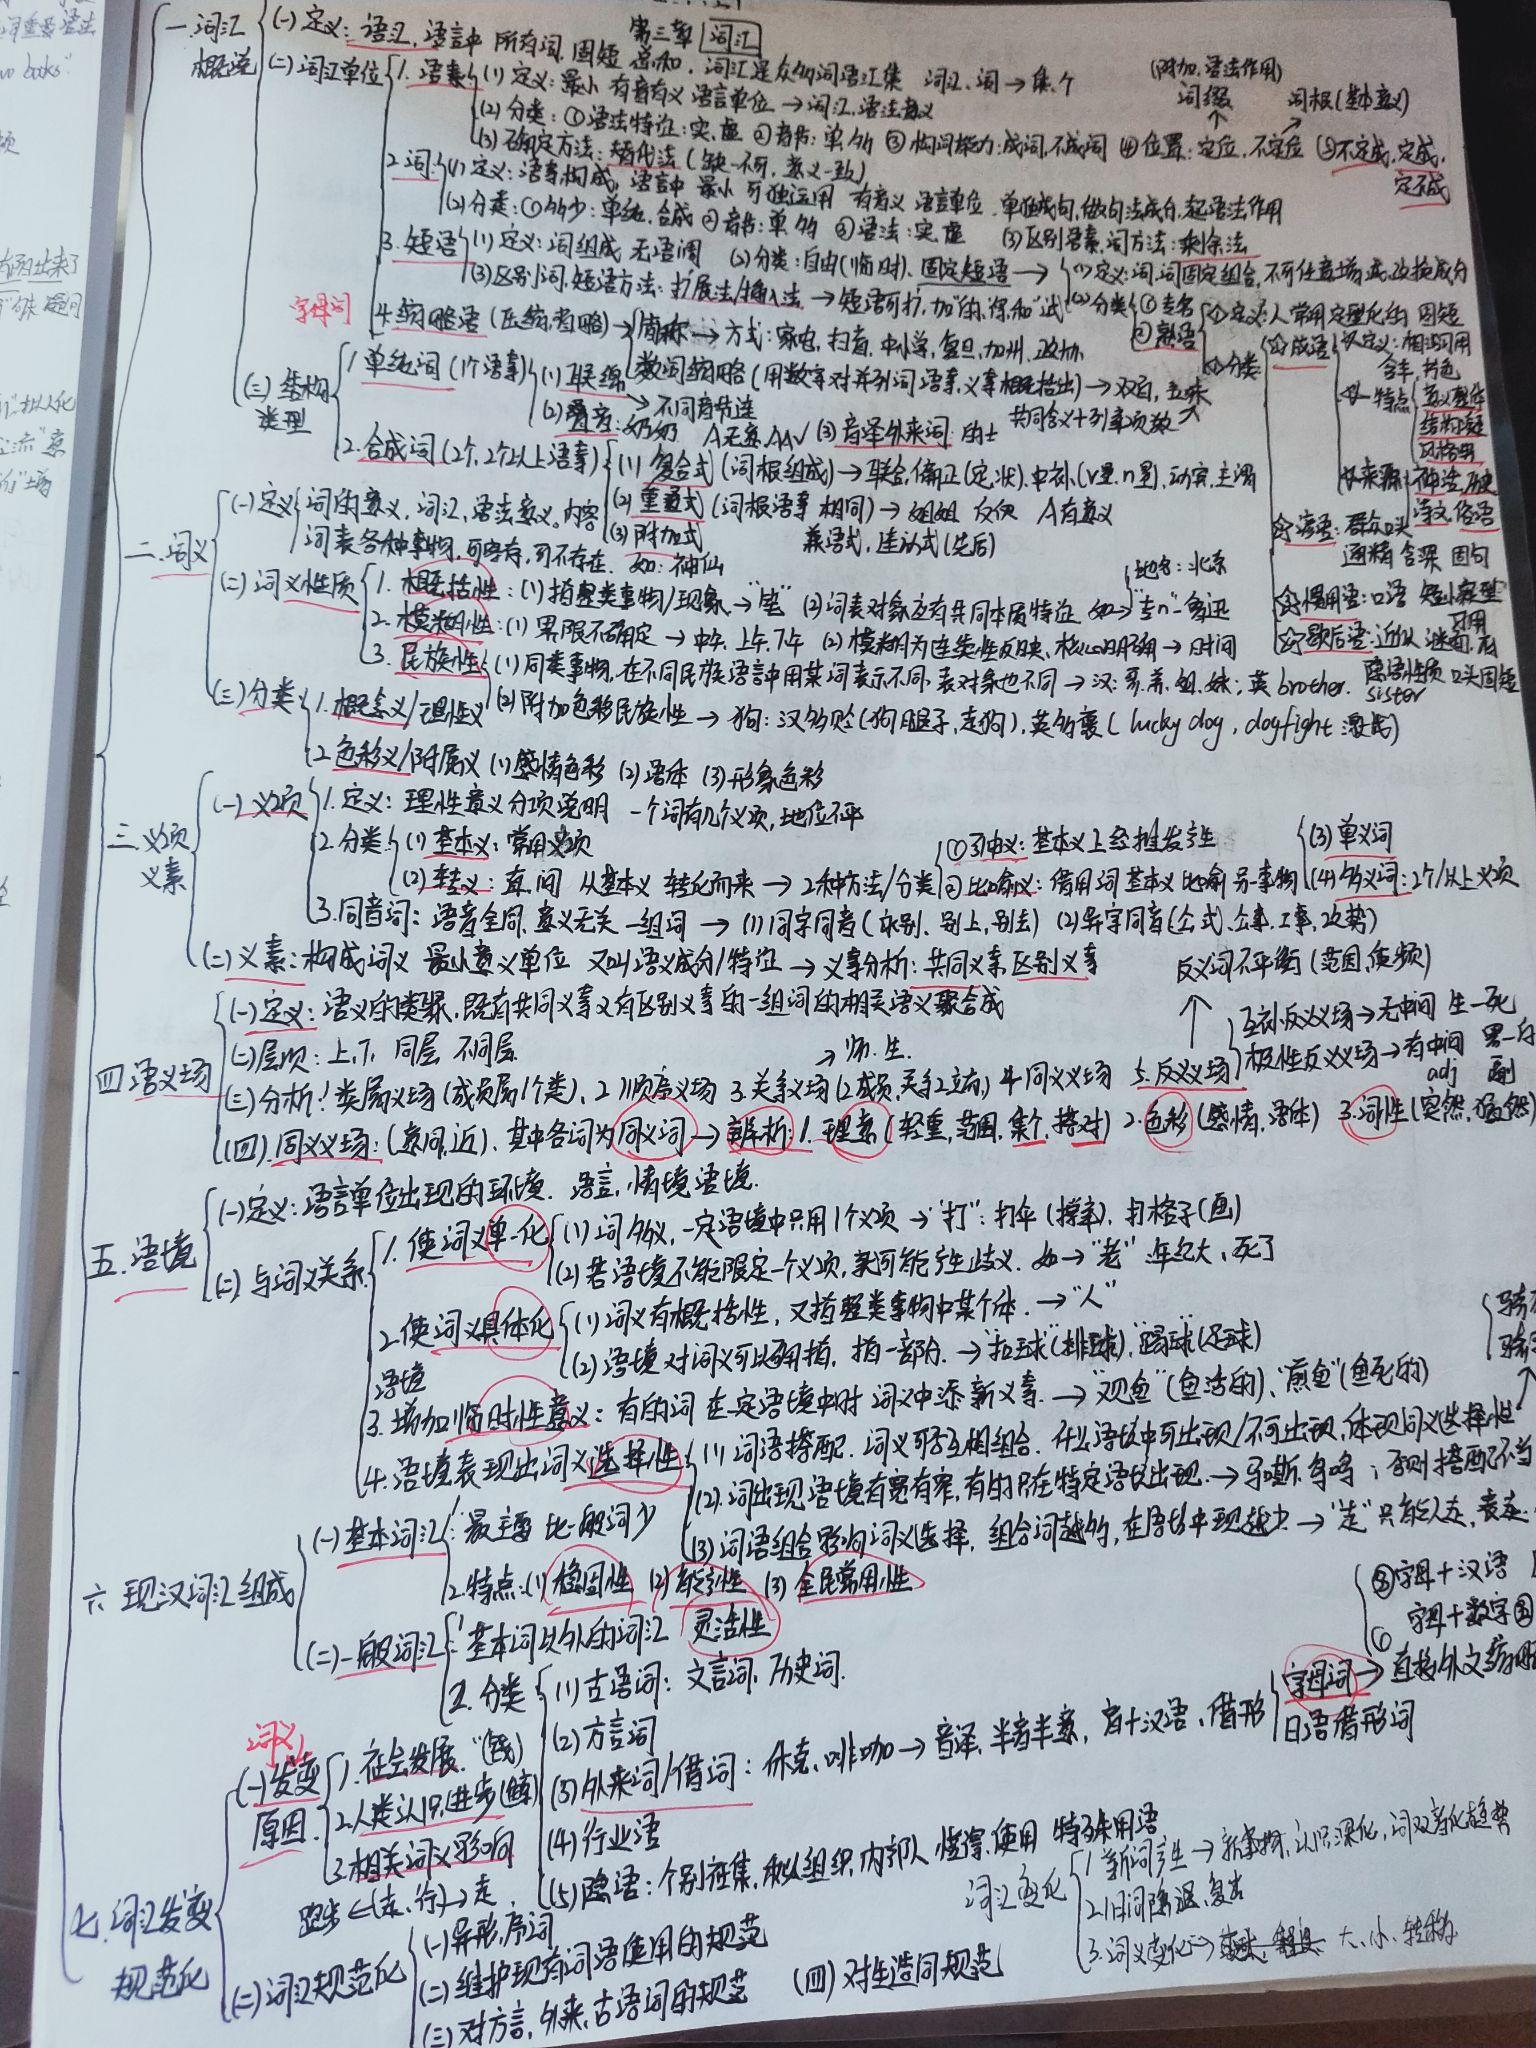 第三章 词汇
一.词汇概说
(一)定义:语汇,语言中所有词,固短总和.词汇是众多词语汇集 词汇、词→集、个
(二)词汇单位
1.语素
(1)定义:最小有音有义语言单位→词汇、语法意义
(附加、语法作用) 词缀
词根(基本意义)
(2)分类:①语法特征:实、虚 ②音节:单、多 ③构词能力:成词、不成词 ④位置:定位、不定位 ⑤不定成、定成、定不成
(3)确定方法:替代法(缺一不可,意义一致)
2.词
(1)定义:语素构成,语言中最小可独运用有音义语言单位.单独成句,做句法成分,起语法作用
(2)分类:①多少:单纯、合成 ②音节:单、多 ③语法:实、虚 (3)区别语素、词方法:剩余法
3.短语
(1)定义:词组成 无语调 (2)分类:自由(临时)、固定短语→
(1)定义:词、词固定组合,不可任意增减、改换成分
(3)区别词、短语方法:扩展法/插入法→短语可扩,加“的、得、和”试
(2)分类 ①专名 ②熟语
字母词
4.缩略语(压缩、省略)
简称→方式:家电,扫盲,中小学,复旦,加州,政协
数词缩略(用数字对并列词语素、义素概括出)→双百,五味
共同含义+列举项数
①定义:人常用定型化的固短
②分类
☆成语
定义:相沿习用含丰,书色
特点 意义整体 结构凝固 风格典雅
来源 神话、历史 诗文、俗语
☆谚语:群众口头 通俗含深 固句
☆惯用语:口语 短小定型 习用
☆歇后语:近似谜面、底 隐语性质 口头固短
(三)结构类型
1.单纯词(1个语素)
(1)联绵→不同音节连
(2)叠音:奶奶 A无意,AA√ (3)音译外来词:的士
2.合成词(2个、2个以上语素)
(1)复合式(词根组成)→联合,偏正(定、状),中补(v量,n量),动宾,主谓
(2)重叠式(词根语素相同)→姐姐 A有意义
(3)附加式
兼语式,连动式(先后)
二.词义
(一)定义
词的意义,词汇、语法意义,内容
词表各种事物,可客存,可不存在.如:神仙
(二)词义性质
1.概括性:(1)指整类事物/现象→“笔” (2)词表对象应有共同本质特征
地名:北京
专n—鲁迅
2.模糊性:(1)界限不确定→中午、上午、下午 (2)模糊为连续性反映、核心明确→时间
3.民族性
(1)同类事物,在不同民族语言中用某词表示不同,表对象也不同→汉:哥、弟、姐、妹;英brother、sister
(2)附加色彩民族性→狗:汉多贬(狗腿子,走狗),英多褒(lucky dog, dogfight 激战)
(三)分类
1.概念义/理性义
2.色彩义/附属义 (1)感情色彩 (2)语体 (3)形象色彩
三.义项 义素
(一)义项
1.定义:理性意义分项说明 一个词有几个义项,地位不平
2.分类
(1)基本义:常用义项
(2)转义:直、间从基本义转化而来→2种方法/分类
①引申义:基本义上经推发产生
②比喻义:借用词基本义比喻另一事物
(3)单义词
(4)多义词:2个/以上义项
3.同音词:语音全同,意义无关一组词→(1)同字同音(永别、别上,别去) (2)异字同音(公式、公事、工事、攻势)
(二)义素:构成词义最小意义单位 又叫语义成分/特征→义素分析:共同义素,区别义素
四.语义场
(一)定义:语义的类聚,既有共同义素又有区别义素的一组词的相关语义聚合成
(二)层次:上、下,同层 不同层
(三)分析:1.类属义场(成员属1个类)、2.顺序义场 3.关系义场(2成员,关系2立而) 4.同义义场 5.反义义场
→师.生
反义词不平衡(范围、使频)
互补反义义场→无中间 生—死
极性反义义场→有中间 黑—白
adj 副
(四)同义义场:(意同、近).其中各词为同义词→辨析:1.理意(轻重,范围,集个,搭对) 2.色彩(感情,语体) 3.词性(突然,猛然)
五.语境
(一)定义:语言单位出现的环境.语言,情境语境.
(二)与词义关系
1.使词义单一化
(1)词多义,一定语境中只用1个义项→“打”:打伞(撑,拿),打格子(画)
(2)若语境不能限定一个义项,就可能产生歧义.如→“老”:年纪大、死了
2.使词义具体化
(1)词义有概括性,又指整类事物中某个体.→“人”
(2)语境对词义可以确指,指一部分.→“扣球”(排球)、“踢球”(足球)
3.语境增加临时性意义:有的词在一定语境中时词义中添新义素.→“观鱼”(鱼活的)、“煎鱼”(鱼死的)
4.语境表现出词义选择性
(1)词语搭配.词义可否互相组合.什么语境中可出现/不可出现,体现词义选择性
(2)词出现语境有宽有窄,有的只在特定语境出现.→马嘶、鸟鸣;否则搭配不当
(3)词语组合影响词义选择,组合词越多,在语境中现越少.→“走”只有能人走,表走
六.现汉词汇组成
(一)基本词汇
1.最主要 比一般词少
2.特点:(1)稳固性 (2)能产性 (3)全民常用性
(二)一般词汇
1.基本词以外的词汇 灵活性
2.分类
(1)古语词:文言词、历史词.
(2)方言词
(3)外来词/借词:休克、咖啡→音译,半音半意,音+汉语、借形
字母词→直接外文缩略
③字母+汉语
字母+数字
日语借形词
(4)行业语
(5)隐语:个别社集、秘组织,内部人懂得、使用特殊用语
七.词汇发变 规范化
词义
(一)发变原因
1.社会发展.“(钱)
2.人类认识,进步
3.相关词义影响
跑步←(走、行)→走
词汇变化
1.新词产生→新事物,认识深化,词双音化趋势
2.旧词隐退、复出
3.词义变化→大、小、转移
(二)词汇规范化
(一)异形、序词
(二)维护现有词语使用的规范
(三)对方言,外来,古语词的规范
(四)对生造词规范